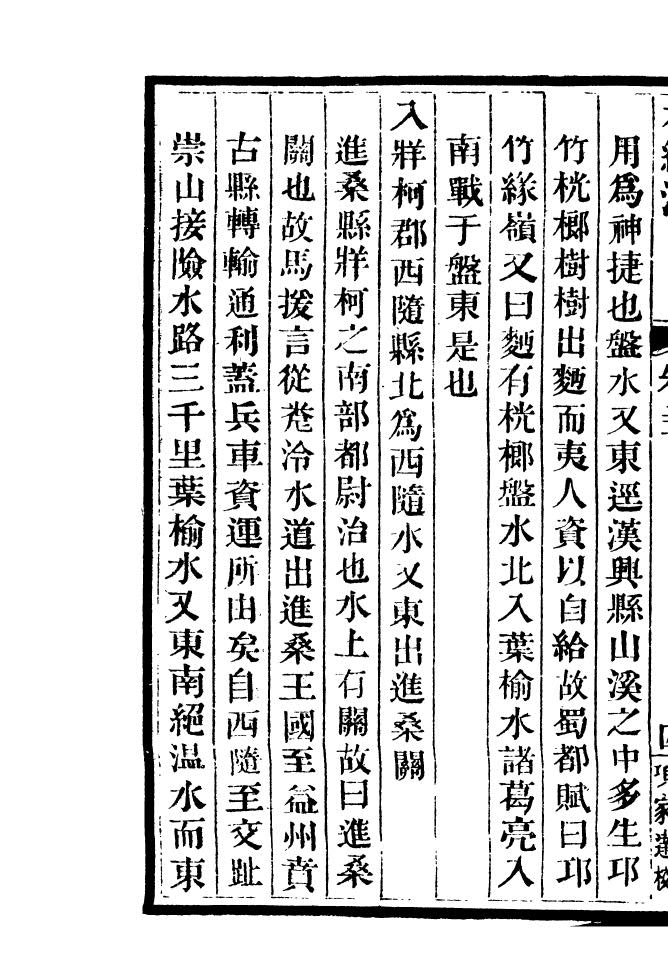 用爲神捷也盤水又東逕漢興縣山溪之中多生邛
竹桄榔樹樹出麪而夷人資以自給故蜀都賦曰邛
竹緣嶺又曰麪有桄榔盤水北入葉榆水諸葛亮入
南戰于盤東是也
入牂柯郡西隨縣北爲西隨水又東出進桑關
進桑縣牂柯之南部都尉治也水上有關故曰進桑
關也故馬援言從麊泠水道出進桑王國至益州賁
古縣轉輸通利蓋兵車資運所由矣自西隨至交趾
崇山接險水路三千里葉榆水又東南絕温水而東